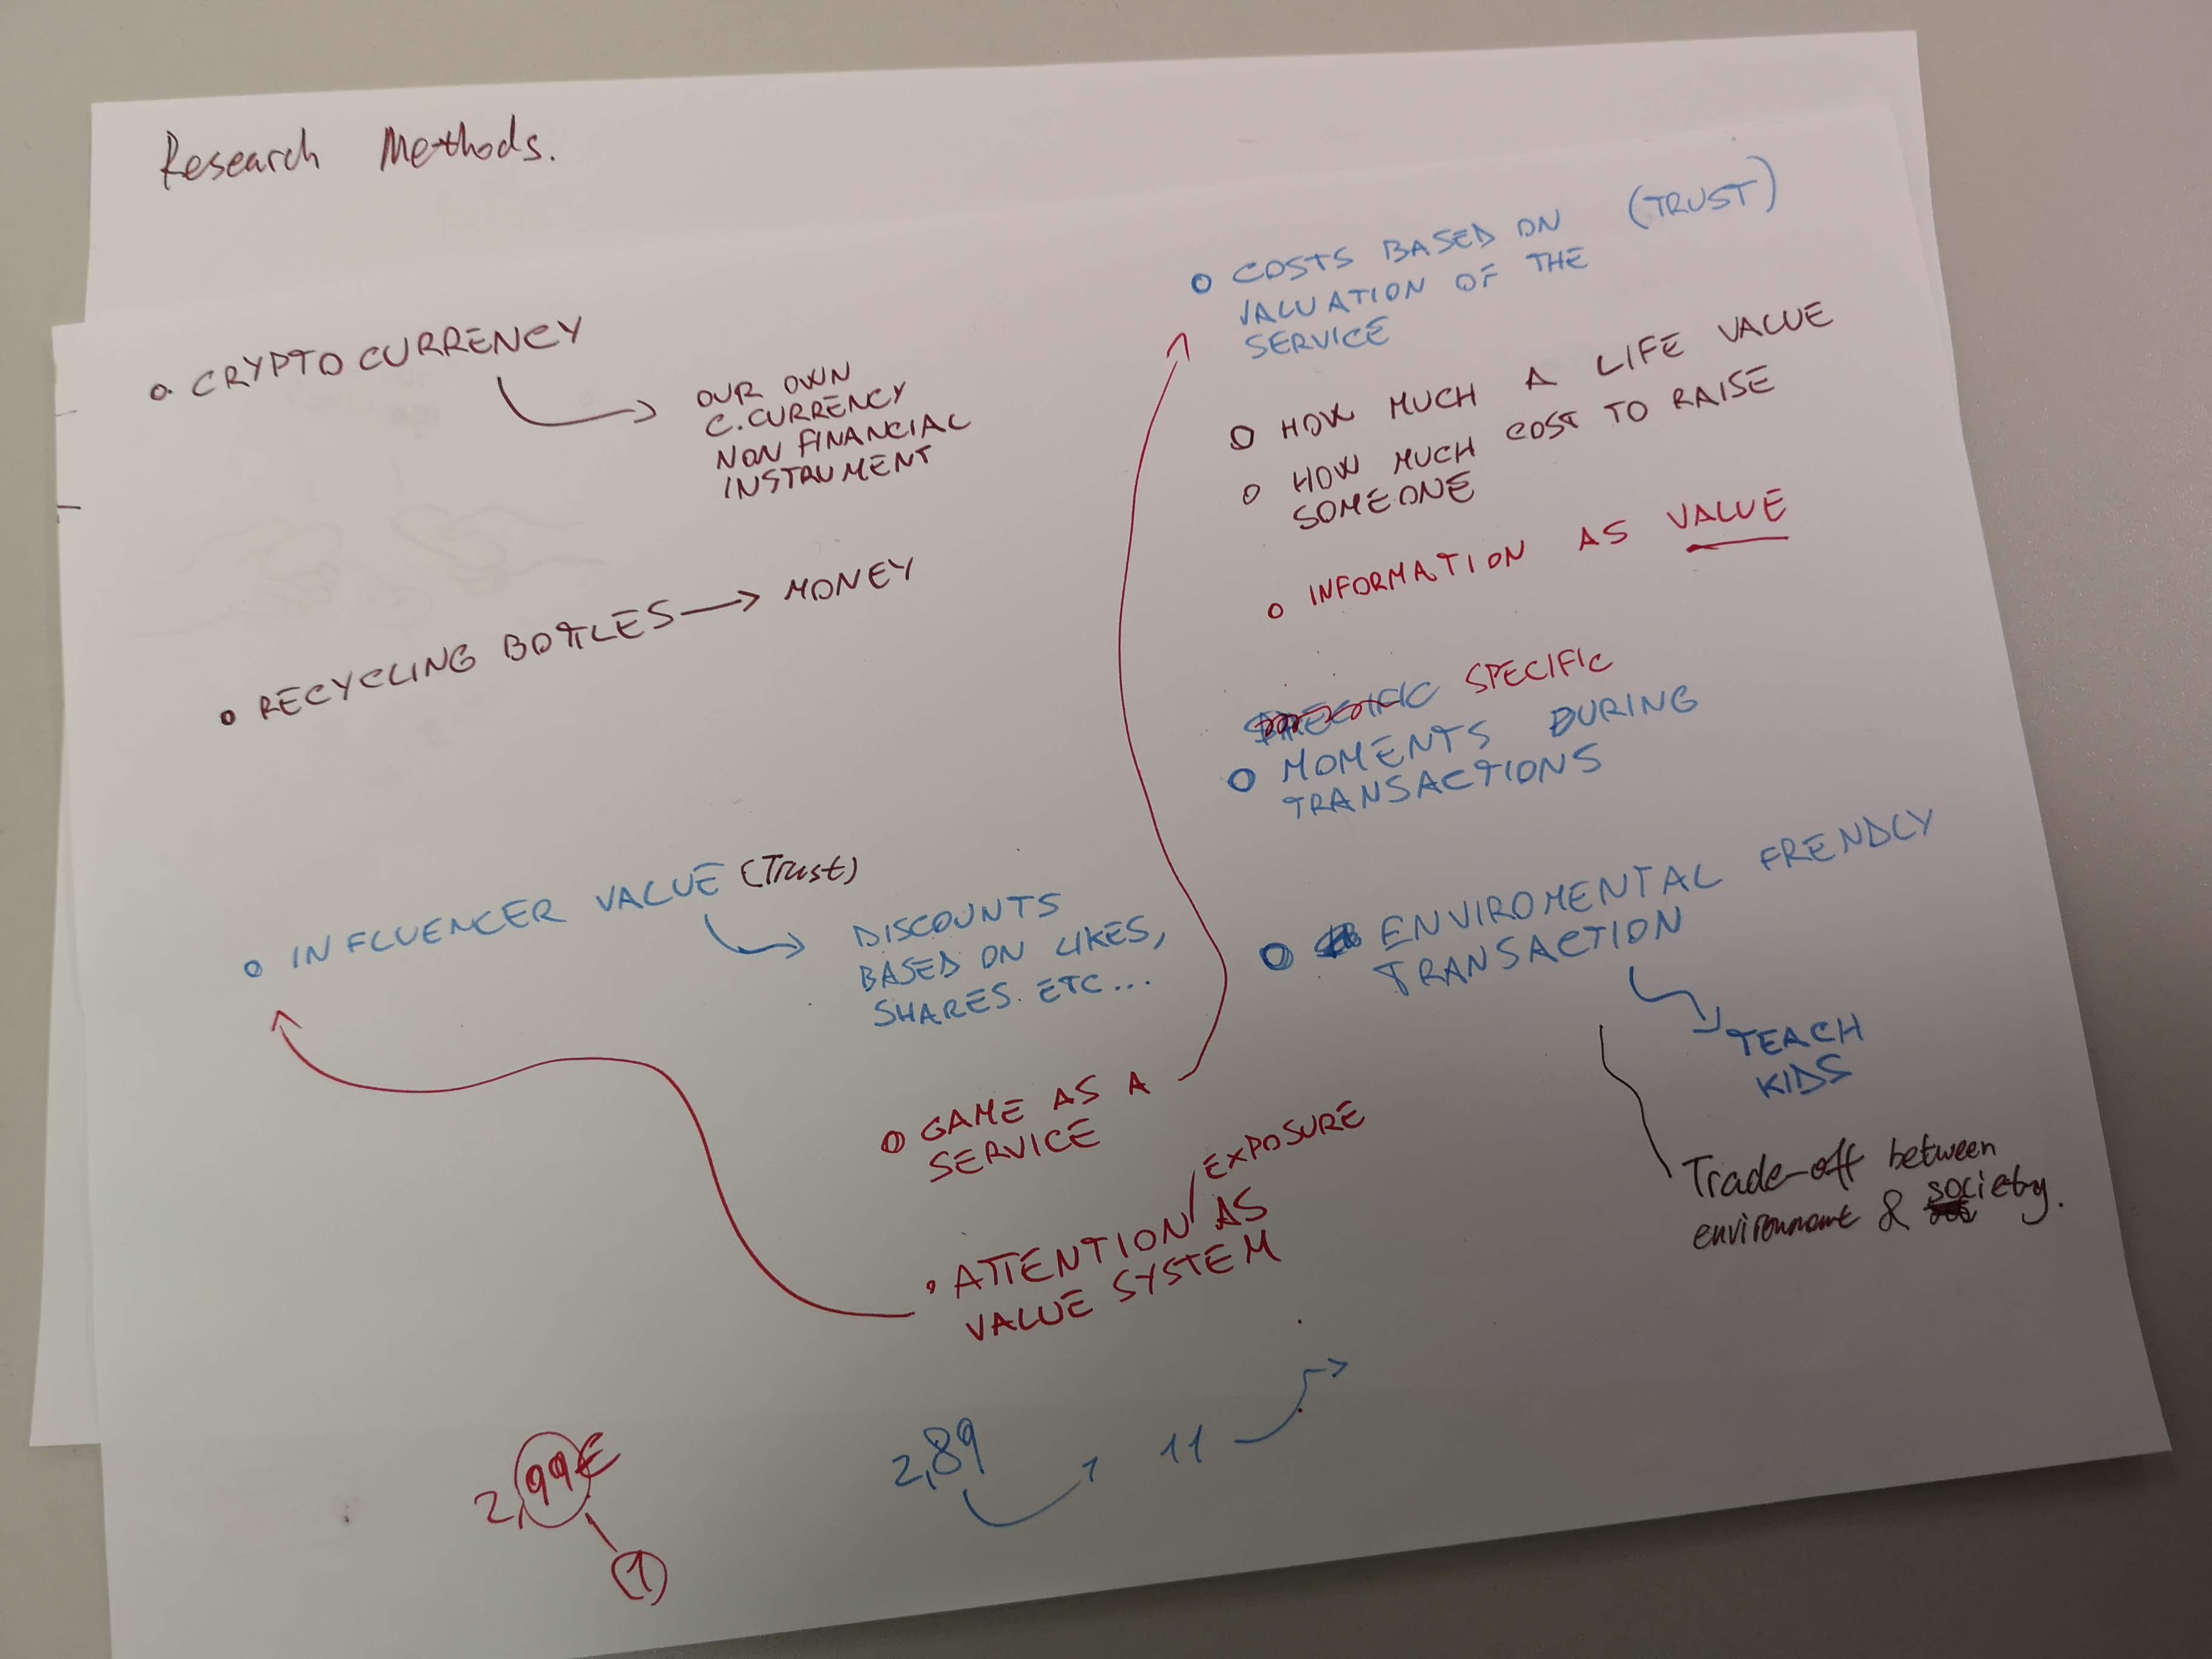 Research Methods.
CRYPTO CURRENCY
OUR OWN
C.CURRENCY
NON FINANCIAL
INSTRUMENT
RECYCLING BOTTLES → MONEY
INFLUENCER VALUE (Trust)
DISCOUNTS
BASED ON LIKES,
SHARES. ETC...
GAME AS A
SERVICE
EXPOSURE
ATTENTION / AS
VALUE SYSTEM
2,99€
1
2,89
1 11
COSTS BASED ON (TRUST)
VALUATION OF THE
SERVICE
HOW MUCH A LIFE VALUE
HOW MUCH COST TO RAISE
SOMEONE
INFORMATION AS VALUE
SPECIFIC
MOMENTS DURING
TRANSACTIONS
ENVIROMENTAL FRENDLY
TRANSACTION
TEACH
KIDS
Trade-off between
environment & society.